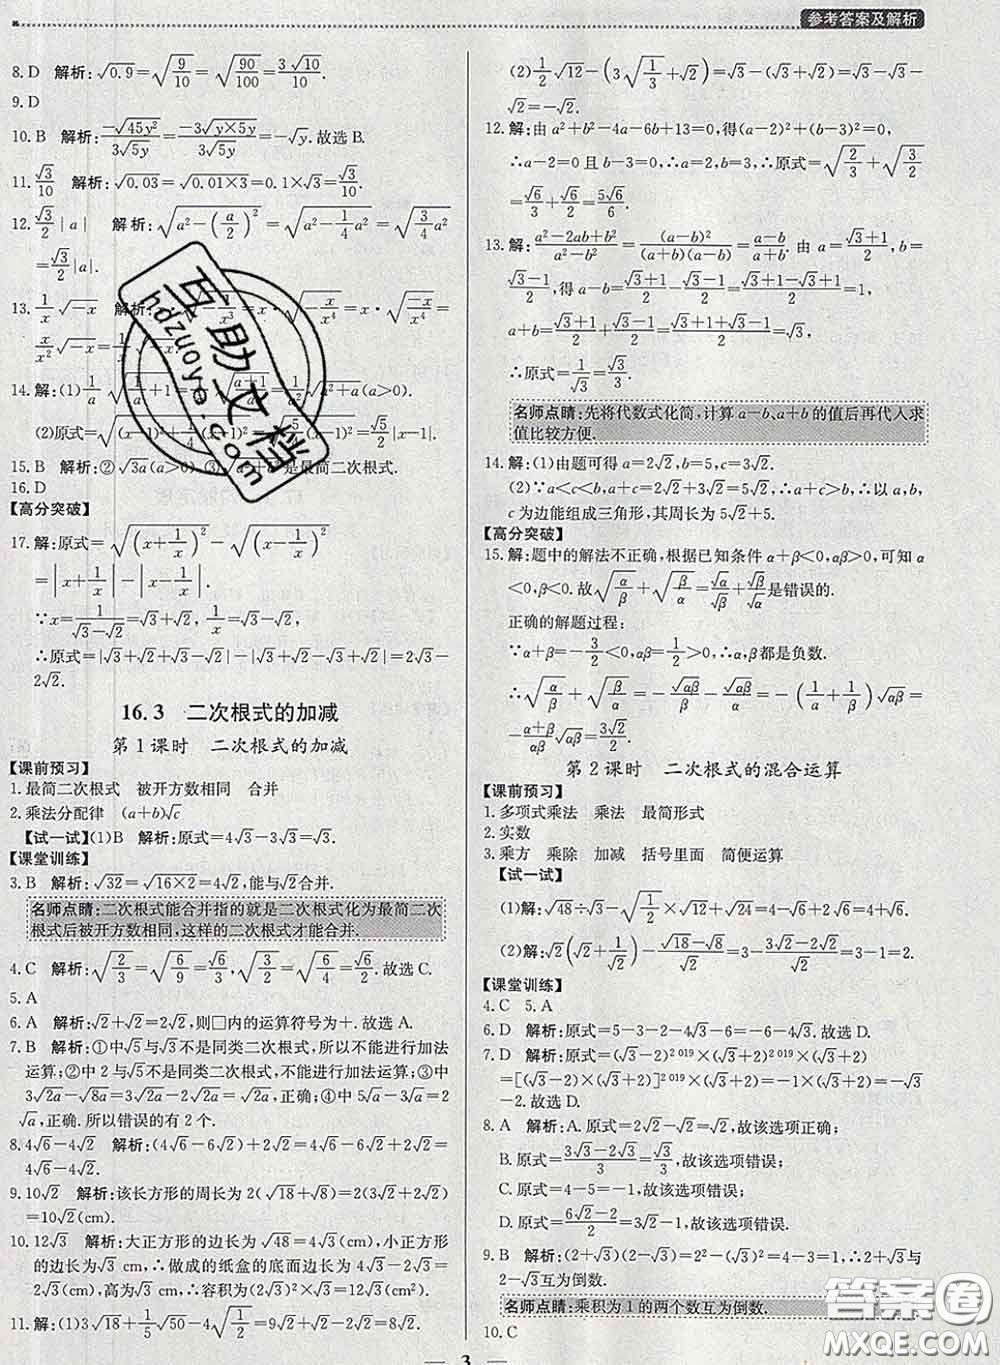 参考答案及解析
8. D 解析:√0.9=√(9/10)=√(90/100)=3√10/10.
9. D
10. B 解析:-√(45y²)/(3√(5y))=-3√(y×5y)/(3√(5y))=-√y.故选 B.
11. √3/10 解析:√0.03=√(0.01×3)=0.1×√3=√3/10.
12. √3/2|a| 解析:√(a²-(a/2)²)=√(a²-1/4a²)=√(3/4a²)
=√3/2|a|.
13. 1/x√-x 解析:
x/x²√-x=1/x√-x
14. 解:(1)1/a
√(a²+a)(a>0).
(2)原式=
|x-1|.
15. B 解析:②√3a(a>0) ③ 是最简二次根式.
16. D
【高分突破】
17. 解:原式=√((x+1/x)²)-√((x-1/x)²)
=|x+1/x|-|x-1/x|.
∵x=1/(√3-√2)=√3+√2, 1/x=√3-√2,
∴原式=|√3+√2+√3-√2|-|√3+√2-√3+√2|=2√3-
2√2.
16.3 二次根式的加减
第1课时 二次根式的加减
【课前预习】
1. 最简二次根式 被开方数相同 合并
2. 乘法分配律 (a+b)√c
【试一试】(1)B 解析:原式=4√3-3√3=√3.
【课堂训练】
3. B 解析:√32=√(16×2)=4√2,能与√2合并.
名师点睛:二次根式能合并指的就是二次根式化为最简二次
根式后被开方数相同,这样的二次根式才能合并.
4. C 解析:√(2/3)=√(6/9)=√6/3,√(3/2)=√(6/4)=√6/2.故选 C.
5. A
6. A 解析:√2+√2=2√2,则□内的运算符号为+.故选 A.
7. B 解析:①中√5与√3不是同类二次根式,所以不能进行加法
运算;②中 2与√5不是同类二次根式,不能进行加法运算;③
3√2a-√8a=3√2a-2√2a=√2a,正确;④中√a+√a=2
√a,正确.所以错误的有 2 个.
8. 4√6-4√2 解析:(4√6-6√2)+2√2=4√6-6√2+2√2=
4√6-4√2.
9. 10√2 解析:该长方形的周长为 2(√18+√8)=2(3√2+2√2)
=10√2(cm).
10. 12√3 解析:大正方形的边长为√48=4√3(cm),小正方形
的边长为√3 cm.∴做成的纸盒的底面边长为 4√3-2√3=
2√3(cm),高为√3 cm,∴容积为(2√3)²×√3=12√3(cm³).
11. 解:(1)3√18+1/5√50-4√(1/2)=9√2+√2-2√2=8√2.
(2)1/2√12-(3√(1/3)+√2)=√3-(√3+√2)=√3-√3-
√2=-√2.
12. 解:由 a²+b²-4a-6b+13=0,得(a-2)²+(b-3)²=0,
∴a-2=0 且 b-3=0,∴a=2,b=3,∴原式=√(2/3)+√(3/2)=
√6/3+√6/2=5√6/6.
13. 解:(a²-2ab+b²)/(a²-b²)=(a-b)²/((a+b)(a-b))=(a-b)/(a+b). 由 a=(√3+1)/2,b=
(√3-1)/2,得 a-b=(√3+1)/2-(√3-1)/2=(√3+1-√3+1)/2=1,
a+b=(√3+1)/2+(√3-1)/2=(√3+1+√3-1)/2=√3,
∴原式=1/√3=√3/3.
名师点睛:先将代数式化简,计算 a-b、a+b 的值后再代入求
值比较方便.
14. 解:(1)由题可得 a=2√2,b=5,c=3√2.
(2)∵a<c<b,a+c=2√2+3√2=5√2,∴a+c>b,∴以 a,b,
c 为边能组成三角形,其周长为 5√2+5.
【高分突破】
15. 解:题中的解法不正确,根据已知条件 α+β<0,αβ>0,可知 α
<0,β<0.故√(α/β)+√(β/α)=√α/√β+√β/√α是错误的.
正确的解题过程:
∵α+β=-3/2<0,αβ=1/3>0,∴α,β都是负数.
∴√(α/β)+√(β/α)=-√αβ/β-√αβ/α=-(1/α+1/β)√αβ=
-(α+β)/αβ·√αβ=3√3/2.
第2课时 二次根式的混合运算
【课前预习】
1. 多项式乘法 乘法 最简形式
2. 实数
3. 乘方 乘除 加减 括号里面 简便运算
【试一试】
(1)解:√48÷√3-√(1/2)×√12+√24=4-√6+2√6=4+√6.
(2)解:√2(√2+1/√2)-(√18-√8)/√2=3-(3√2-2√2)/√2=3-1=2.
【课堂训练】
4. C 5. A
6. D 解析:原式=5-3-2-4√3-6=-6-4√3.故选 D.
7. D 解析:原式=(√3-2)²⁰¹⁹×(√3+2)²⁰¹⁹×(√3+2)
=[(√3-2)×(√3+2)]²⁰¹⁹×(√3+2)=-1×(√3+2)=-√3
-2.故选 D.
8. A 解析:A. 原式=2√2-√2=√2,故该选项正确;
B. 原式=(3√3-2√3)/3=√3/3,故该选项错误;
C. 原式=4-5=-1,故该选项错误;
D. 原式=(6√2-2)/2=3√2-1,故该选项错误.
9. B 解析:(2+√3)(2-√3)=2²-(√3)²=4-3=1,∴2+√3与
2-√3互为倒数.
名师点睛:乘积为 1 的两个数互为倒数.
10. C
3
互助文档
hdzuoye.com
答案圈
MXQE.COM